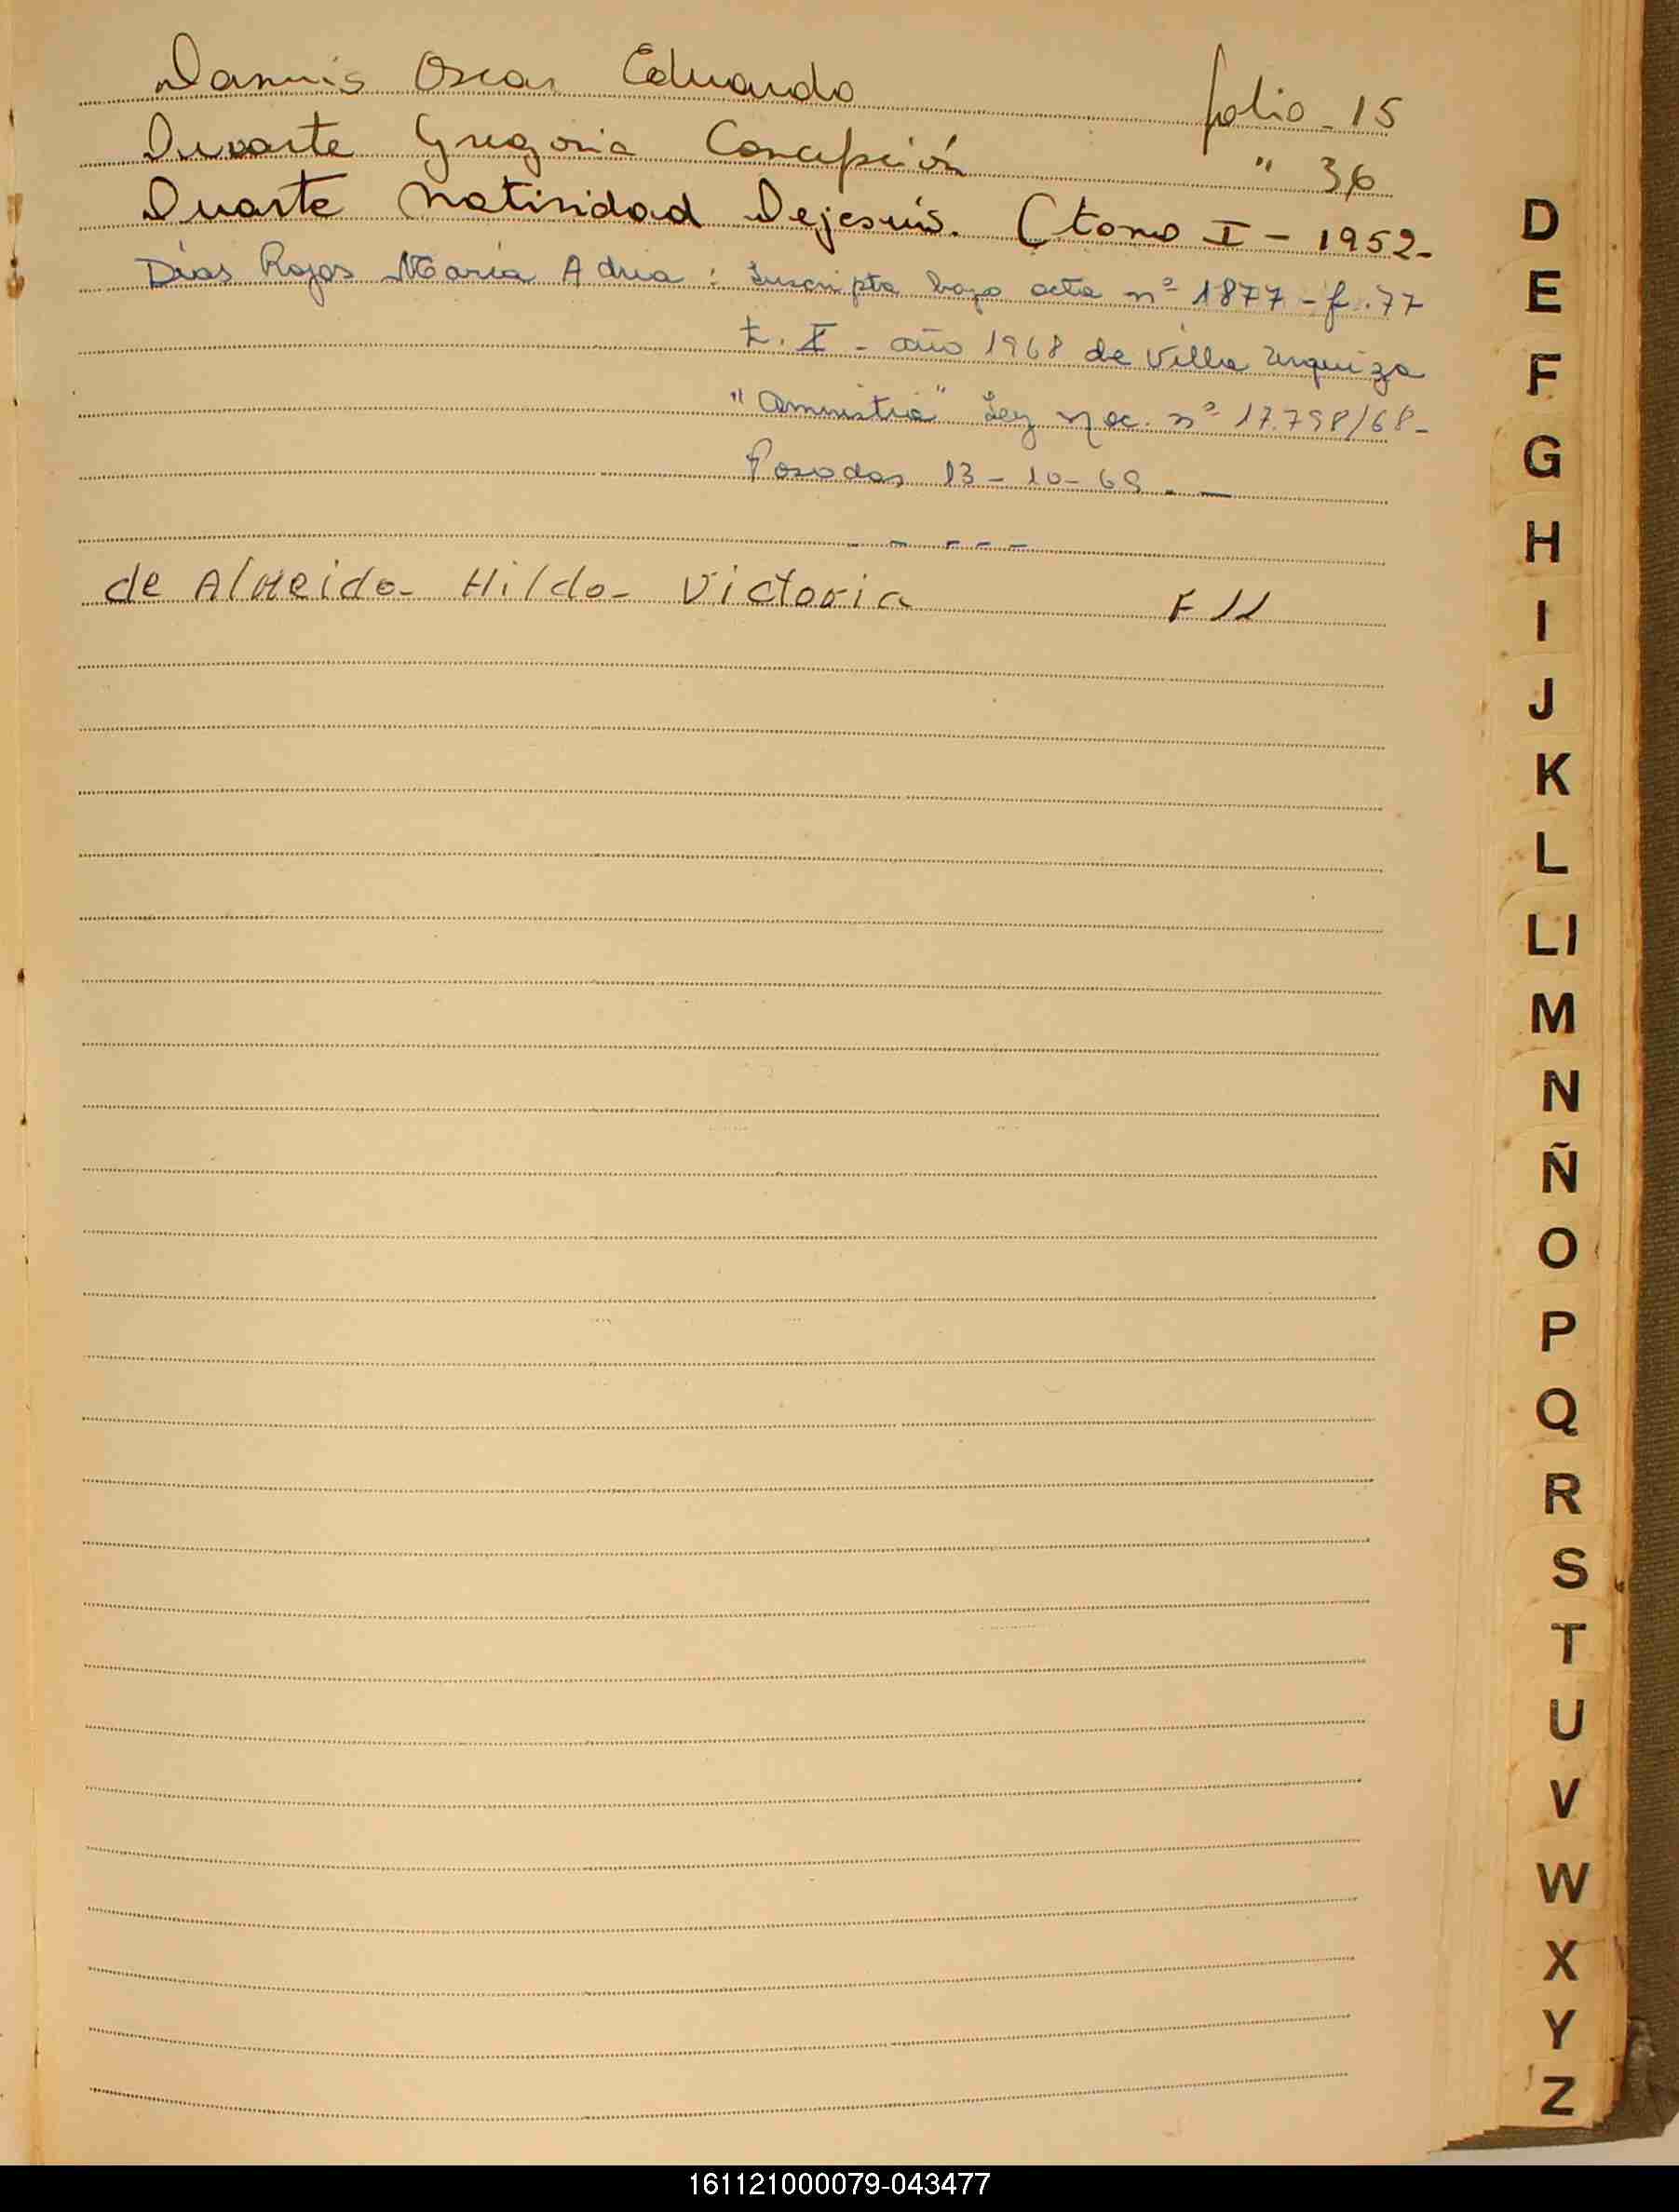 Oscar Eduardo folio - 15
Duarte Gregoria Concepción " 36
Duarte Natividad Dejesús. (tomo I - 1952-
Días Rojas María Adria : Inscripta bajo acta nº 1877 - f. 77
t. - año 1968 de Villa Urquiza
"Amnistía" Ley nac. nº 17.798/68-
Posadas 13 - 10 - 69 . —
- - - - -
de Almeida Hilda Victoria F 11
D
E
F
G
H
I
J
K
L
Ll
M
N
Ñ
O
P
Q
R
S
T
U
V
W
X
Y
Z
161121000079-043477